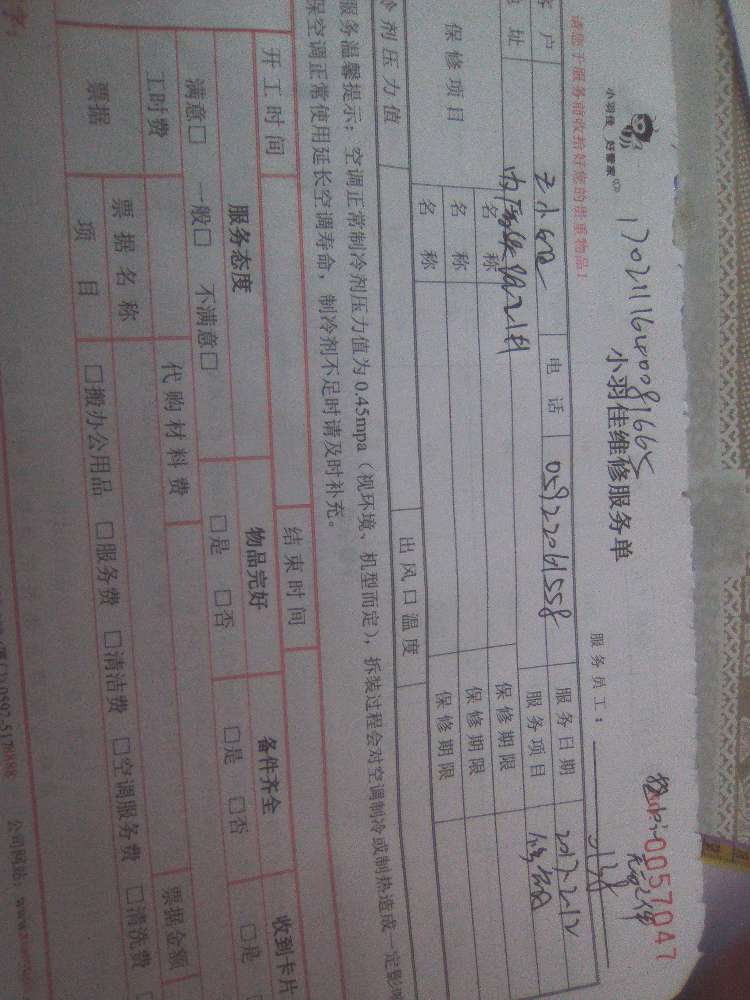 小羽佳 好管家
1702111640081665
0057047
小羽佳维修服务单
服务员工：
请您于服务前收拾好您的贵重物品！
客户 电话 05922061558 服务日期 2017.2.12
地址 服务项目
保修项目 名称 保修期限
名称 保修期限
名称 保修期限
冷剂压力值 出风口温度
服务温馨提示：空调正常制冷剂压力值为0.45mpa（视环境、机型而定），拆装过程会对空调制冷或制热造成一定影响
保空调正常使用延长空调寿命，制冷剂不足时请及时补充。
开工时间 结束时间
服务态度 物品完好 备件齐全 收到卡片
满意□ 一般□ 不满意□ □是 □否 □是 □否 □是
工时费 代购材料费 票据金额
票据 票据名称
项目 □搬办公用品 □服务费 □清洁费 □空调服务费 □清洗费
0592-5178888 公司网站：www.
字：